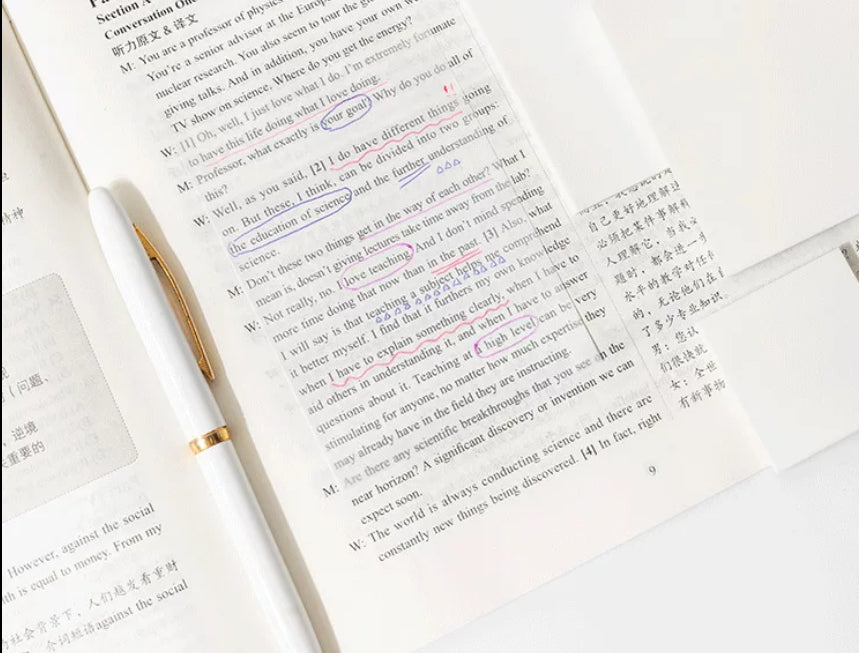 Section A
Conversation One
听力原文 & 译文
M: You are a professor of physics
You're a senior advisor at the Europ
nuclear research. You also seem to tour the
giving talks. And in addition, you have your own
TV show on science. Where do you get the energy?
W: [1] Oh, well, I just love what I do. I'm extremely fortunate
to have this life doing what I love doing.
M: Professor, what exactly is your goal? Why do you do all of
this?
W: Well, as you said, [2] I do have different things going
on. But these, I think, can be divided into two groups:
the education of science and the further understanding of
science.
M: Don't these two things get in the way of each other? What I
mean is, doesn't giving lectures take time away from the lab?
W: Not really, no. I love teaching. And I don't mind spending
more time doing that now than in the past. [3] Also, what
I will say is that teaching a subject helps me comprehend
it better myself. I find that it furthers my own knowledge
when I have to explain something clearly, when I have to
aid others in understanding it, and when I have to answer
questions about it. Teaching at a high level can be very
stimulating for anyone, no matter how much expertise they
may already have in the field they are instructing.
M: Are there any scientific breakthroughs that you see on the
near horizon? A significant discovery or invention we can
expect soon.
W: The world is always conducting science and there are
constantly new things being discovered. [4] In fact, right
9
自己更好地理解
必须把某件事解
人理解它，当我
题时，都会进一
水平的教学对任
的，无论他们在
了多少专业知识
男：您认
们很快就
女：全世
有新事物
精神
（问题、
、逆境
重要的
However, against the social
th is equal to money. From my
社会背景下，人们越发看重财
介词短语against the social